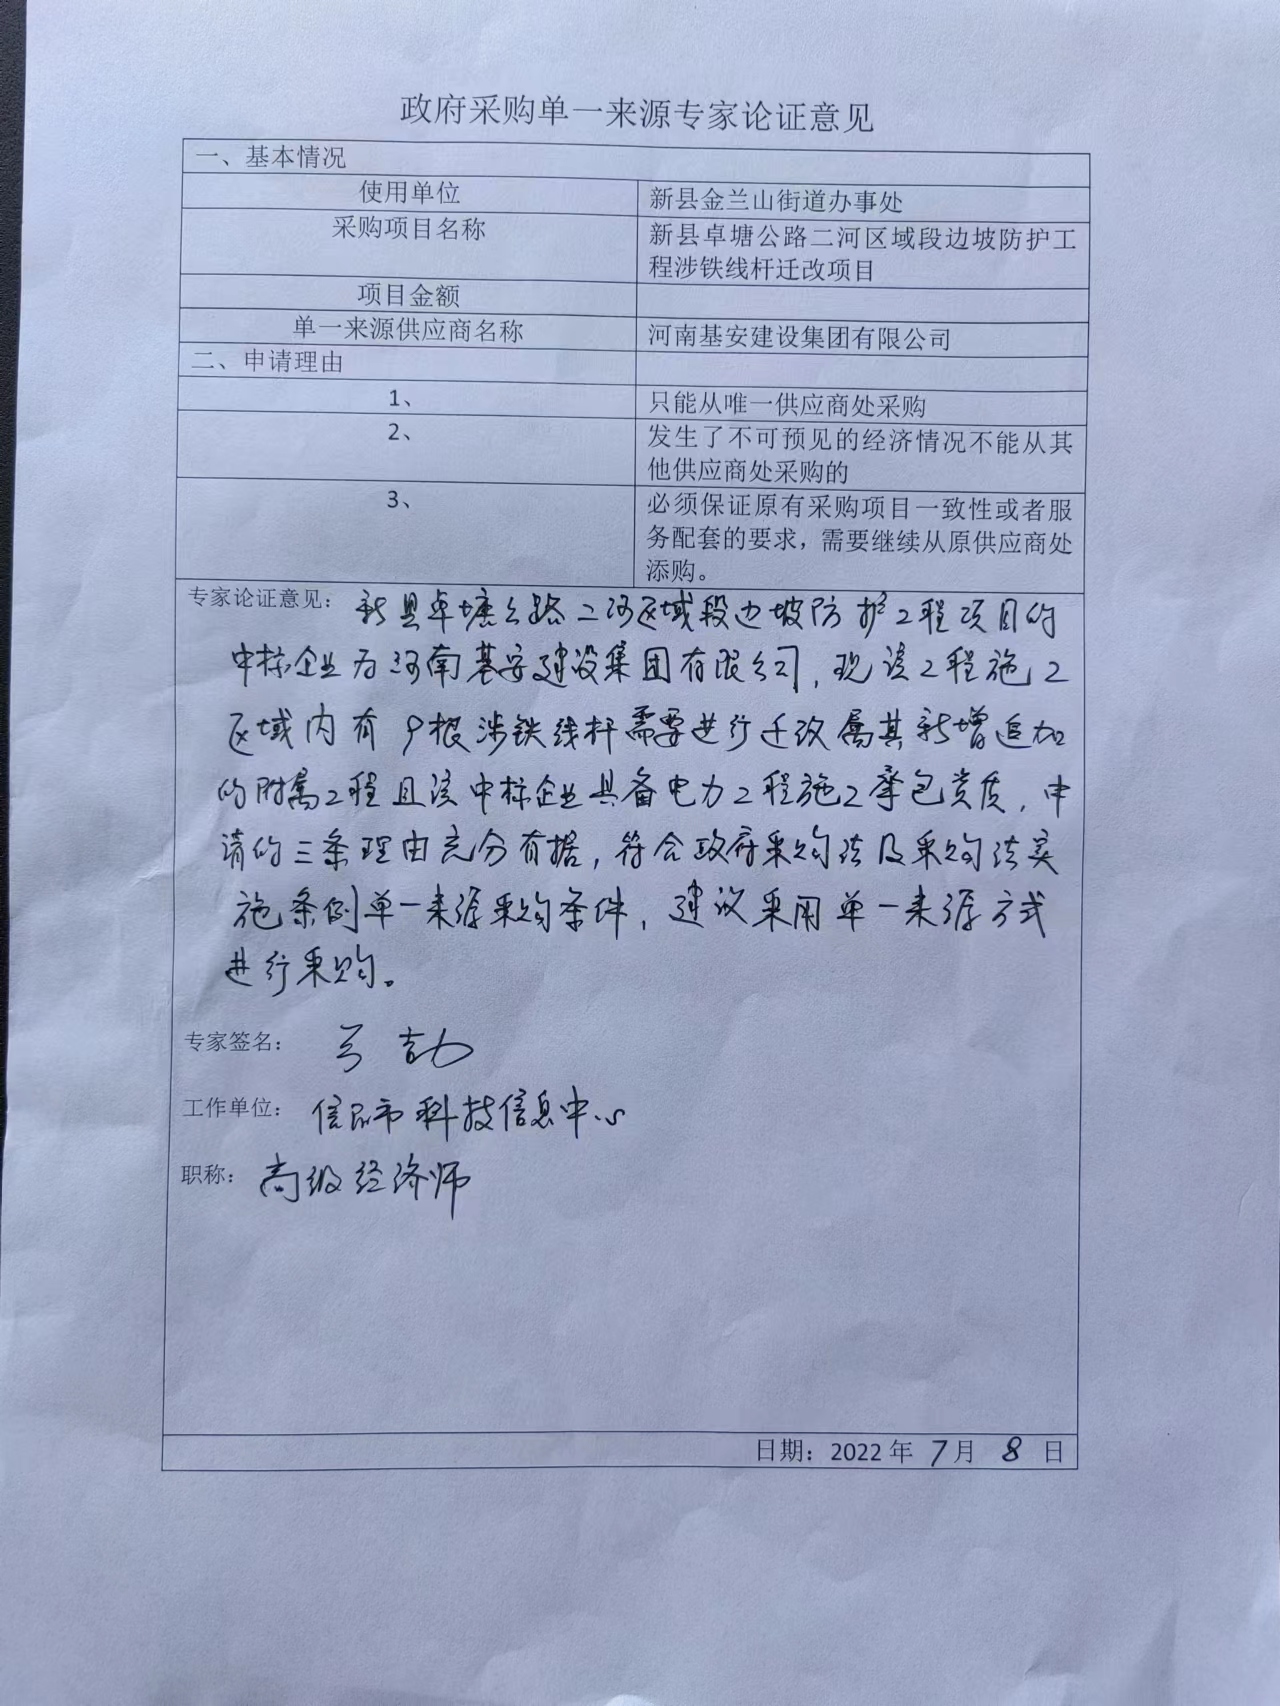 政府采购单一来源专家论证意见
一、基本情况
使用单位
新县金兰山街道办事处
采购项目名称
新县卓塘公路二河区域段边坡防护工
程涉铁线杆迁改项目
项目金额
单一来源供应商名称
河南基安建设集团有限公司
二、申请理由
1、
只能从唯一供应商处采购
2、
发生了不可预见的经济情况不能从其
他供应商处采购的
3、
必须保证原有采购项目一致性或者服
务配套的要求，需要继续从原供应商处
添购。
专家论证意见： 新县卓塘公路二河区域段边坡防护工程项目的
中标企业为河南基安建设集团有限公司，现该工程施工
区域内有9根涉铁线杆需要进行迁改属其新增追加
的附属工程且该中标企业具备电力工程施工承包资质，申
请的三条理由充分有据，符合政府采购法及采购法实
施条例单一来源采购条件，建议采用单一来源方式
进行采购。
专家签名：
工作单位： 信阳市科技信息中心
职称： 高级经济师
日期：2022年7月8日